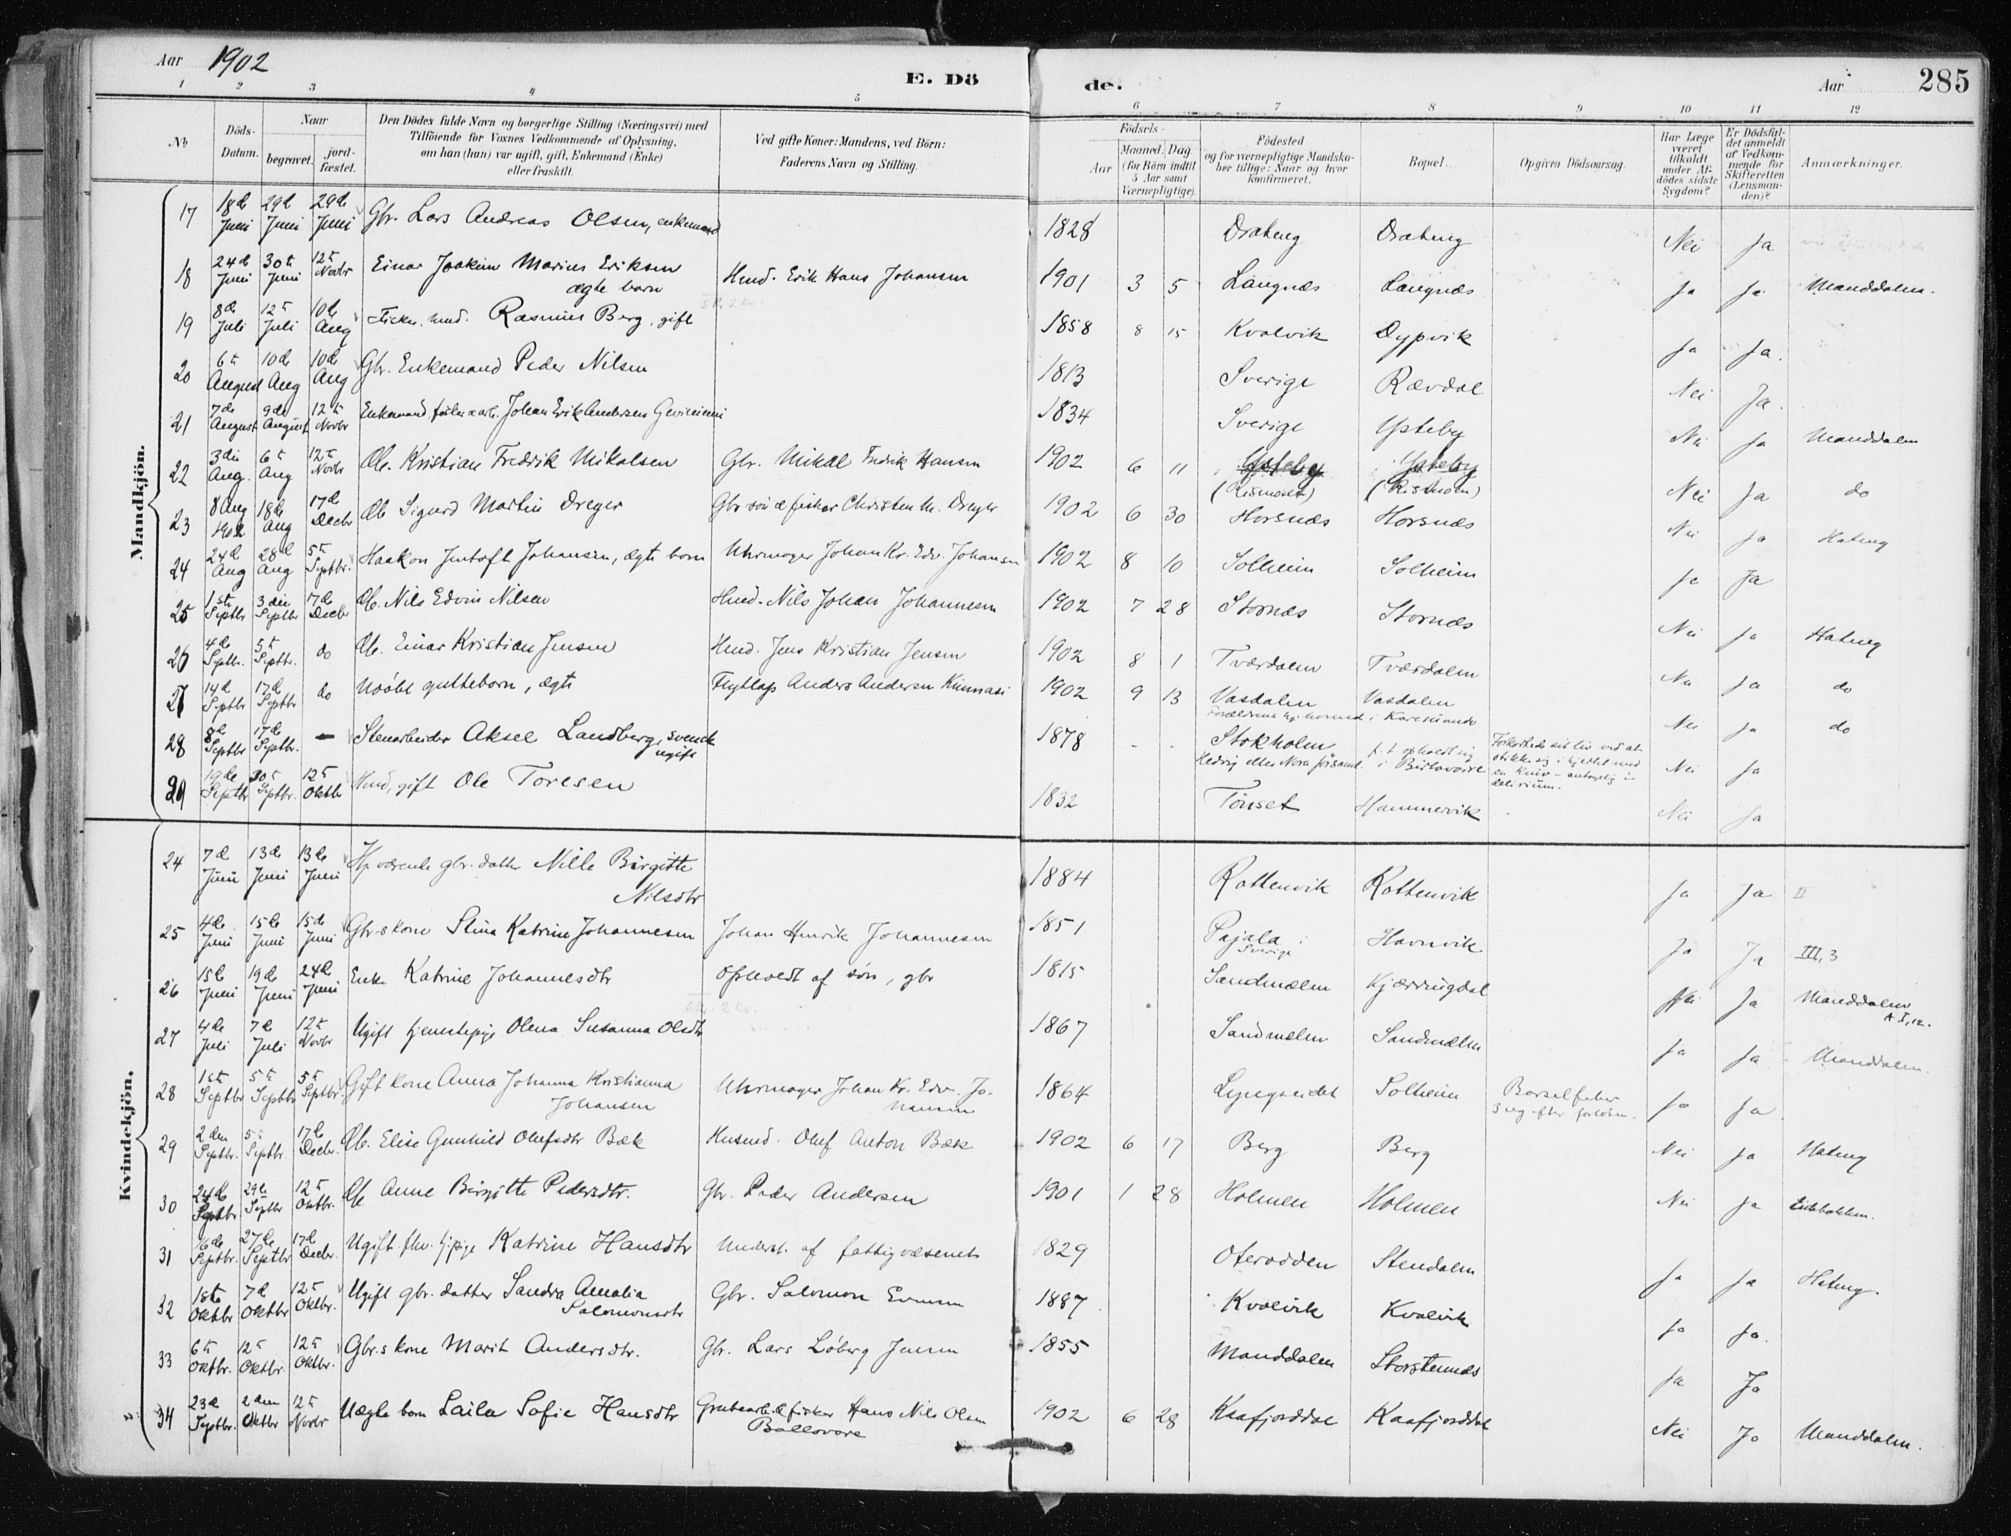 Aar 1902
E. Dö de.
Aar 285
1 2 3 4 5 6 7 8 9 10 11 12
No
Döds-Datum.
Naar
begravet.
jord-fæstet.
Den Dödes fulde Navn og borgerlige Stilling (Næringsvei) med
Tilföiende for Voxnes Vedkommende af Oplysning,
om han (hun) var ugift, gift, Enkemand (Enke)
eller fraskilt.
Ved gifte Koner: Mandens, ved Börn:
Faderens Navn og Stilling.
Födsels-
Aar
Maaned. Dag
(for Börn indtil
5 Aar samt
Værnepligtige).
Födested
og for værnepligtige Mandskaber tillige: Naar og hvor konfirmeret.
Bopæl.
Opgiven Dödsaarsag.
Har Læge været tilkaldt under Afdödes sidste Sygdom?
Er Dödsfaldet anmeldt af Vedkommende for Skifteretten (Lensmanden)?
Anmærkninger.
Mandkjön.
17 18de Juni 29de Juni 29de Juni Gbr. Lars Andreas Olsen, enkemand 1828 Draheng Draheng Nei Ja
18 24de Juni 30te Juni 12te Novbr Einar Joakim Marius Eriksen ægte barn Husd. Erik Hans Johansen 1901 3 5 Langnæs Langnæs Ja Ja Manddalen.
19 8de Juli 12te Juli 10de Aug Rasmus Berg, gift 1858 8 15 Kvalvik Dypvik Ja Ja.
20 6te August 10de Aug 10de Aug Gbr. Enkemand Peder Nilsen 1813 Sverige Rævdal Nei Ja.
21 7de August 9de August 12te Novbr Enkemand Johan Erik Andersen 1834 Sverige Ysteby Nei Ja Manddalen
22 3die Aug. 6te Aug 12te Novbr Æb. Kristian Fredrik Mikalsen Gbr. Mikal Fredrik Hansen 1902 6 11 Ysteby (Rismoen) Ysteby (Rismoen) Nei Ja do
23 8 Aug 1902 18de Aug 17de Decbr Æb Sigurd Martin Dreyer Gbr søn & fisker Christen M. Dreyer 1902 6 30 Horsnæs Horsnæs Nei Ja Hateng
24 24de Aug 28de Aug 5te Septbr. Haakon Johansen, ægte barn Uhrmager Johan Kr. Edv. Johansen 1902 8 10 Solheim Solheim Ja Ja
25 1ste Septbr 3die Septbr 17de Decbr Æb. Nils Edvin Nilsen Husd. Nils Johan Johannesen 1902 7 28 Stornæs Stornæs Nei Ja Hateng
26 4de Septbr. 5te Septbr. do Æb. Einar Kristian Jensen Husd. Jens Kristian Jensen 1902 8 1 Tværdalen Tværdalen Nei Ja do
27 14de Septbr 17de Septbr do Udøbt gutteborn, ægte Flytlap Anders Andersen 1902 9 13 Vasdalen Vasdalen Nei Ja do
Forældrene hj. hørende i Karesuando
28 8de Septbr 17de Septbr. — Stenarbeider Aksel Landberg, svensk ugift 1878 - - Stokholm Hedvig eller Nora församl. f.t. opholdt sig i Birtavarre Forkortede sit liv ved at stikke sig i hjertet med en kniv - antagelig i delirium. Nei Ja
29 19de Septbr 30te Septbr. 12te Oktbr Husd, gift Ole Toresen 1832 Tönset Hammervik Nei Ja
Kvindekjön.
24 7de Juni 13de Juni 13de Juni Hj. værende gbr. datter Nille Birgitte Nilsdtr 1884 Rottenvik Rottenvik Ja Ja II
25 4de Juni 15de Juni 15de Juni Gbr.s kone Stina Katrine Johannesen Johan Henrik Johannesen 1851 Pajala Sverige Havnvik Ja Ja III,3
26 15de Juni 19de Juni 24de Juni Enke Katrine Johannesdtr opholdt af søn, gbr 1815 Sandmælen Kjærringdal Nei Ja Manddalen
27 4de Juli 7de Juli 12te Novbr Ugift tjenestepige Olena Susanna Olsdtr 1867 Sandmælen Sandmælen Ja Ja Manddalen.
28 1ste Septbr 5te Septbr 5te Septbr. Gift kone Anna Johanna Kristianna Johansen Uhrmager Johan Kr. Edv. Johansen 1864 Lyngseidet Solheim Barselfeber 3 ug. efter forløsn. Ja Ja
29 2den Septbr. 5te Septbr 17de Decbr. Æb. Elise Gunhild Olufsdtr Bæk Husmd. Oluf Anton Bæk 1902 6 17 Berg Berg Nei Ja Hateng
30 24de Septbr 29de Septbr 12te Oktbr. Æb Anne Birgitte Pedersdtr. Gbr. Peder Andersen 1901 1 28 Holmen Holmen Nei Ja
31 16de Septbr. 27de Septbr 17de Decbr. Ugift Katrine Hansdtr Underst. af fattigvæsenet 1829 Oteradden Stendalen Ja Ja Hateng.
32 1ste Oktbr 7de Oktbr 12te Oktbr. Ugift gbr. datter Sandra Amalia Salomonsdtr Gbr. Salomon Evensen 1887 Kvalvik Kvalvik Ja Ja.
33 6te Oktbr. 12te Oktbr. 12te Oktbr. Gbr.s kone Marit Andersdtr. Gbr. Lars Løberg Jensen 1855 Manddalen Storstennæs Ja Ja
34 23de Septbr. 2den Oktbr 12te Novbr Uægte barn Laila Sofie Hansdtr Grubearb. & fisker Hans Nils Olsen Ballovare 1902 6 28 Kaafjorddal Kaafjorddal Nei Ja Manddalen.